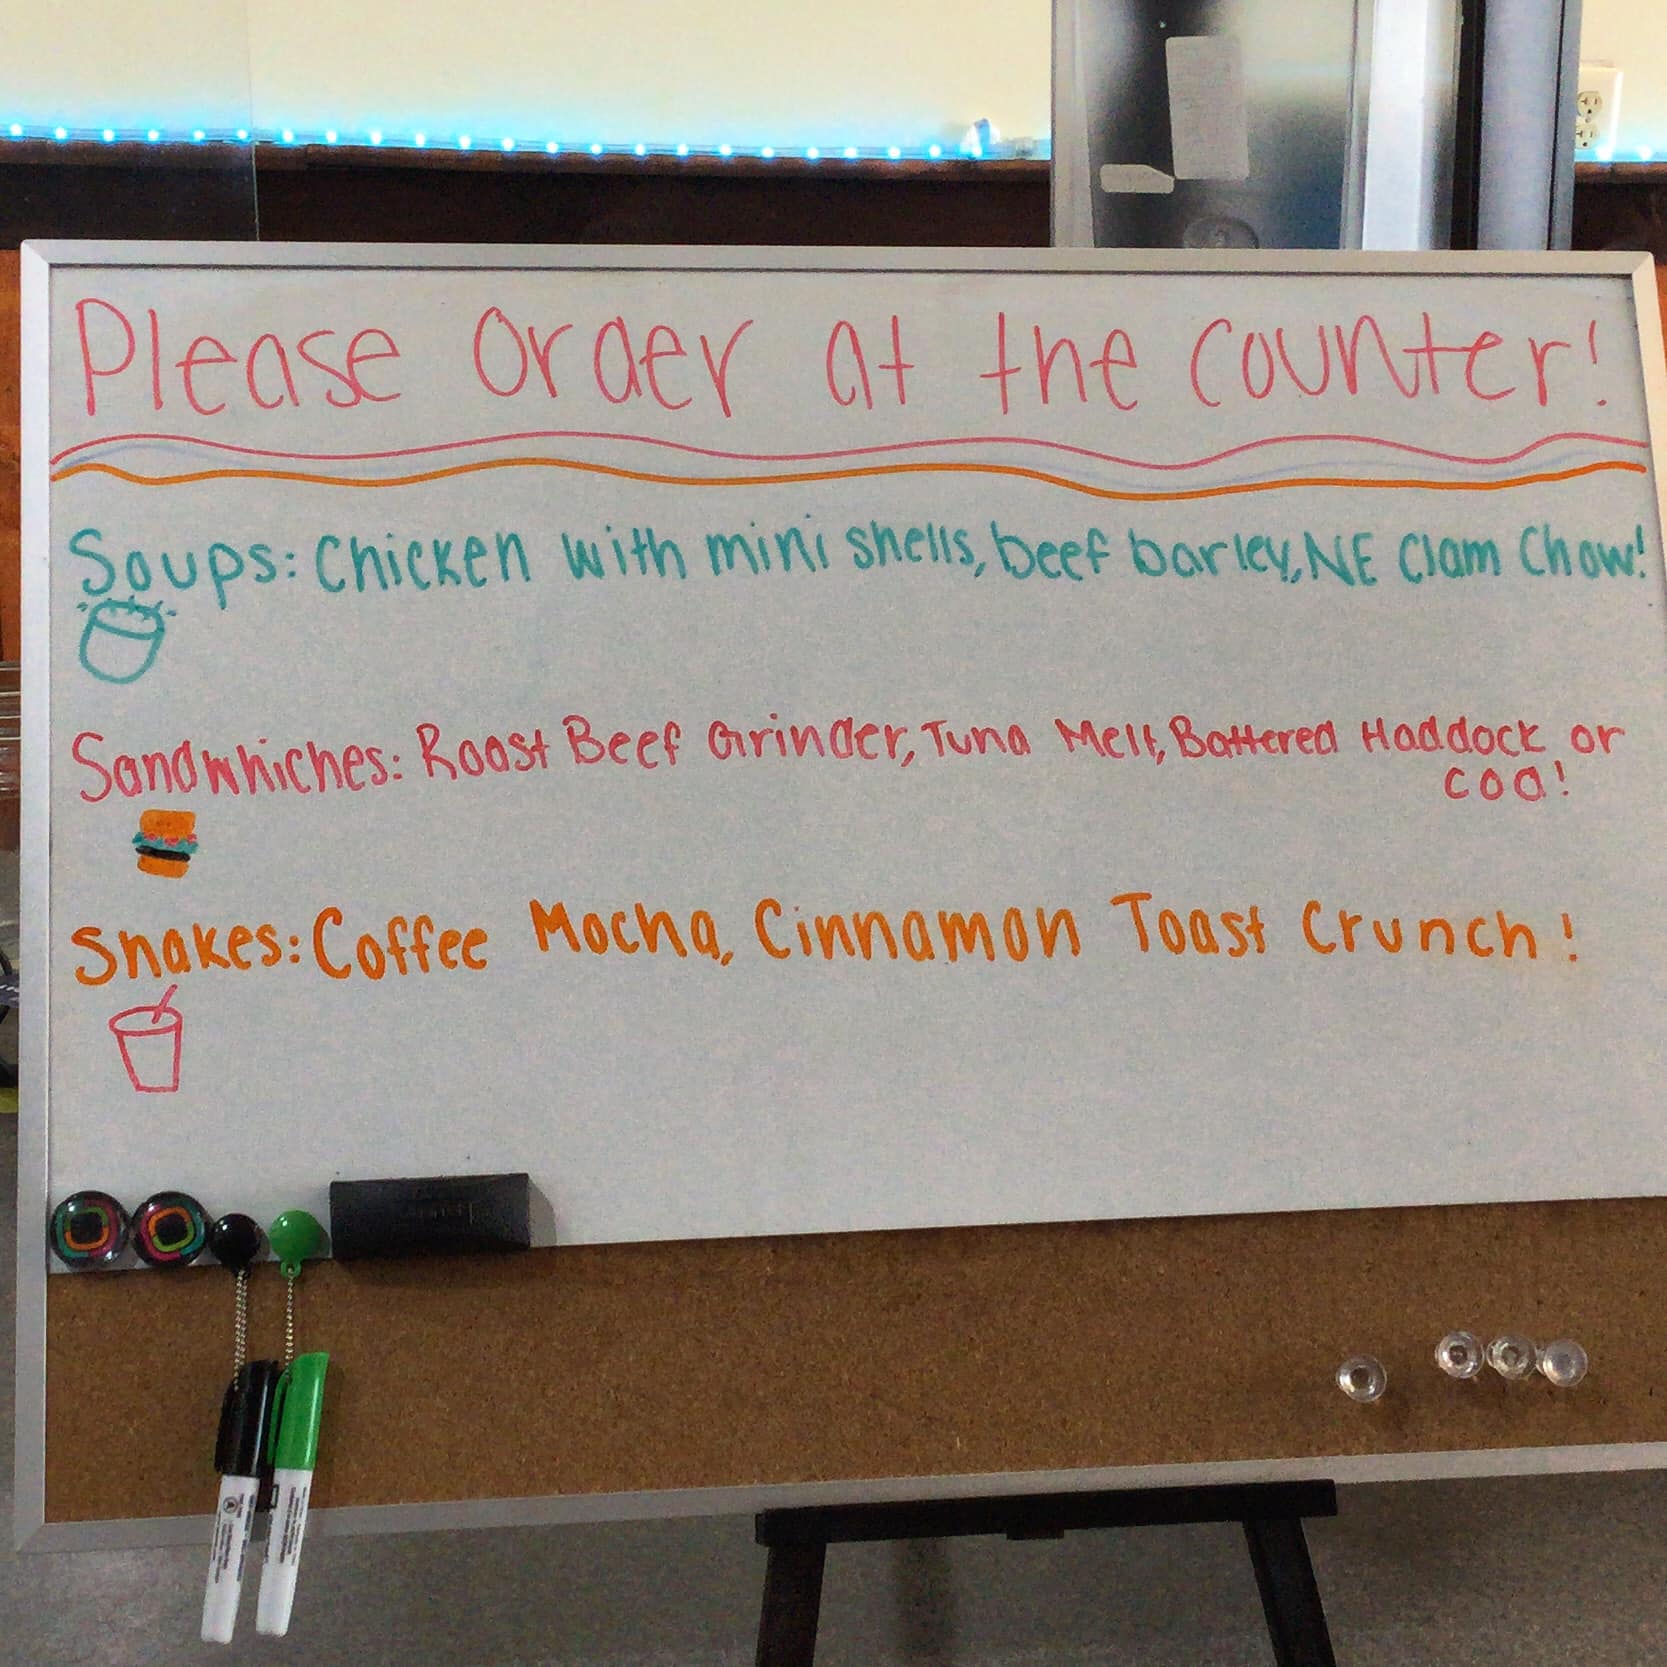 Please order at the counter!
Soups: Chicken with mini shells, beef barley, NE Clam Chow!
Sandwhiches: Roast Beef Grinder, Tuna Melt, Battered Haddock or
cod!
Snakes: Coffee Mocha, Cinnamon Toast Crunch!